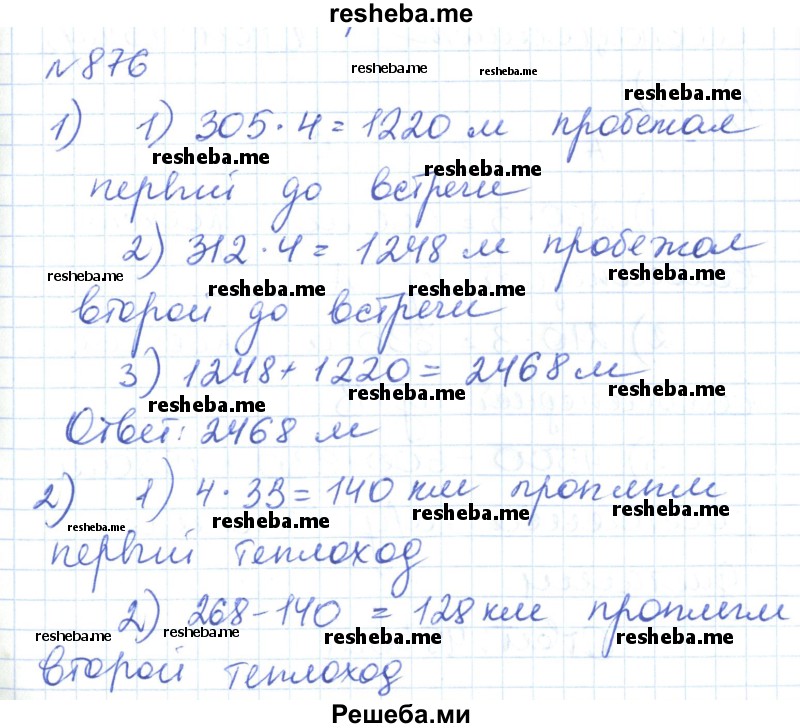 resheba.me
№876
resheba.me resheba.me
resheba.me
1) 1) 305·4=1220 м пробежал
resheba.me
resheba.me
первый до встречи
2) 312·4= 1248 м пробежал
resheba.me resheba.me
resheba.me resheba.me
второй до встречи
3) 1248+1220= 2468 м
resheba.me resheba.me resheba.me
Ответ: 2468 м
2) 1) 4·33=140 км проплыл
resheba.me resheba.me resheba.me resheba.me
первый теплоход
2) 268-140 = 128 км проплыл
resheba.me resheba.me resheba.me resheba.me
второй теплоход
Решеба.ми